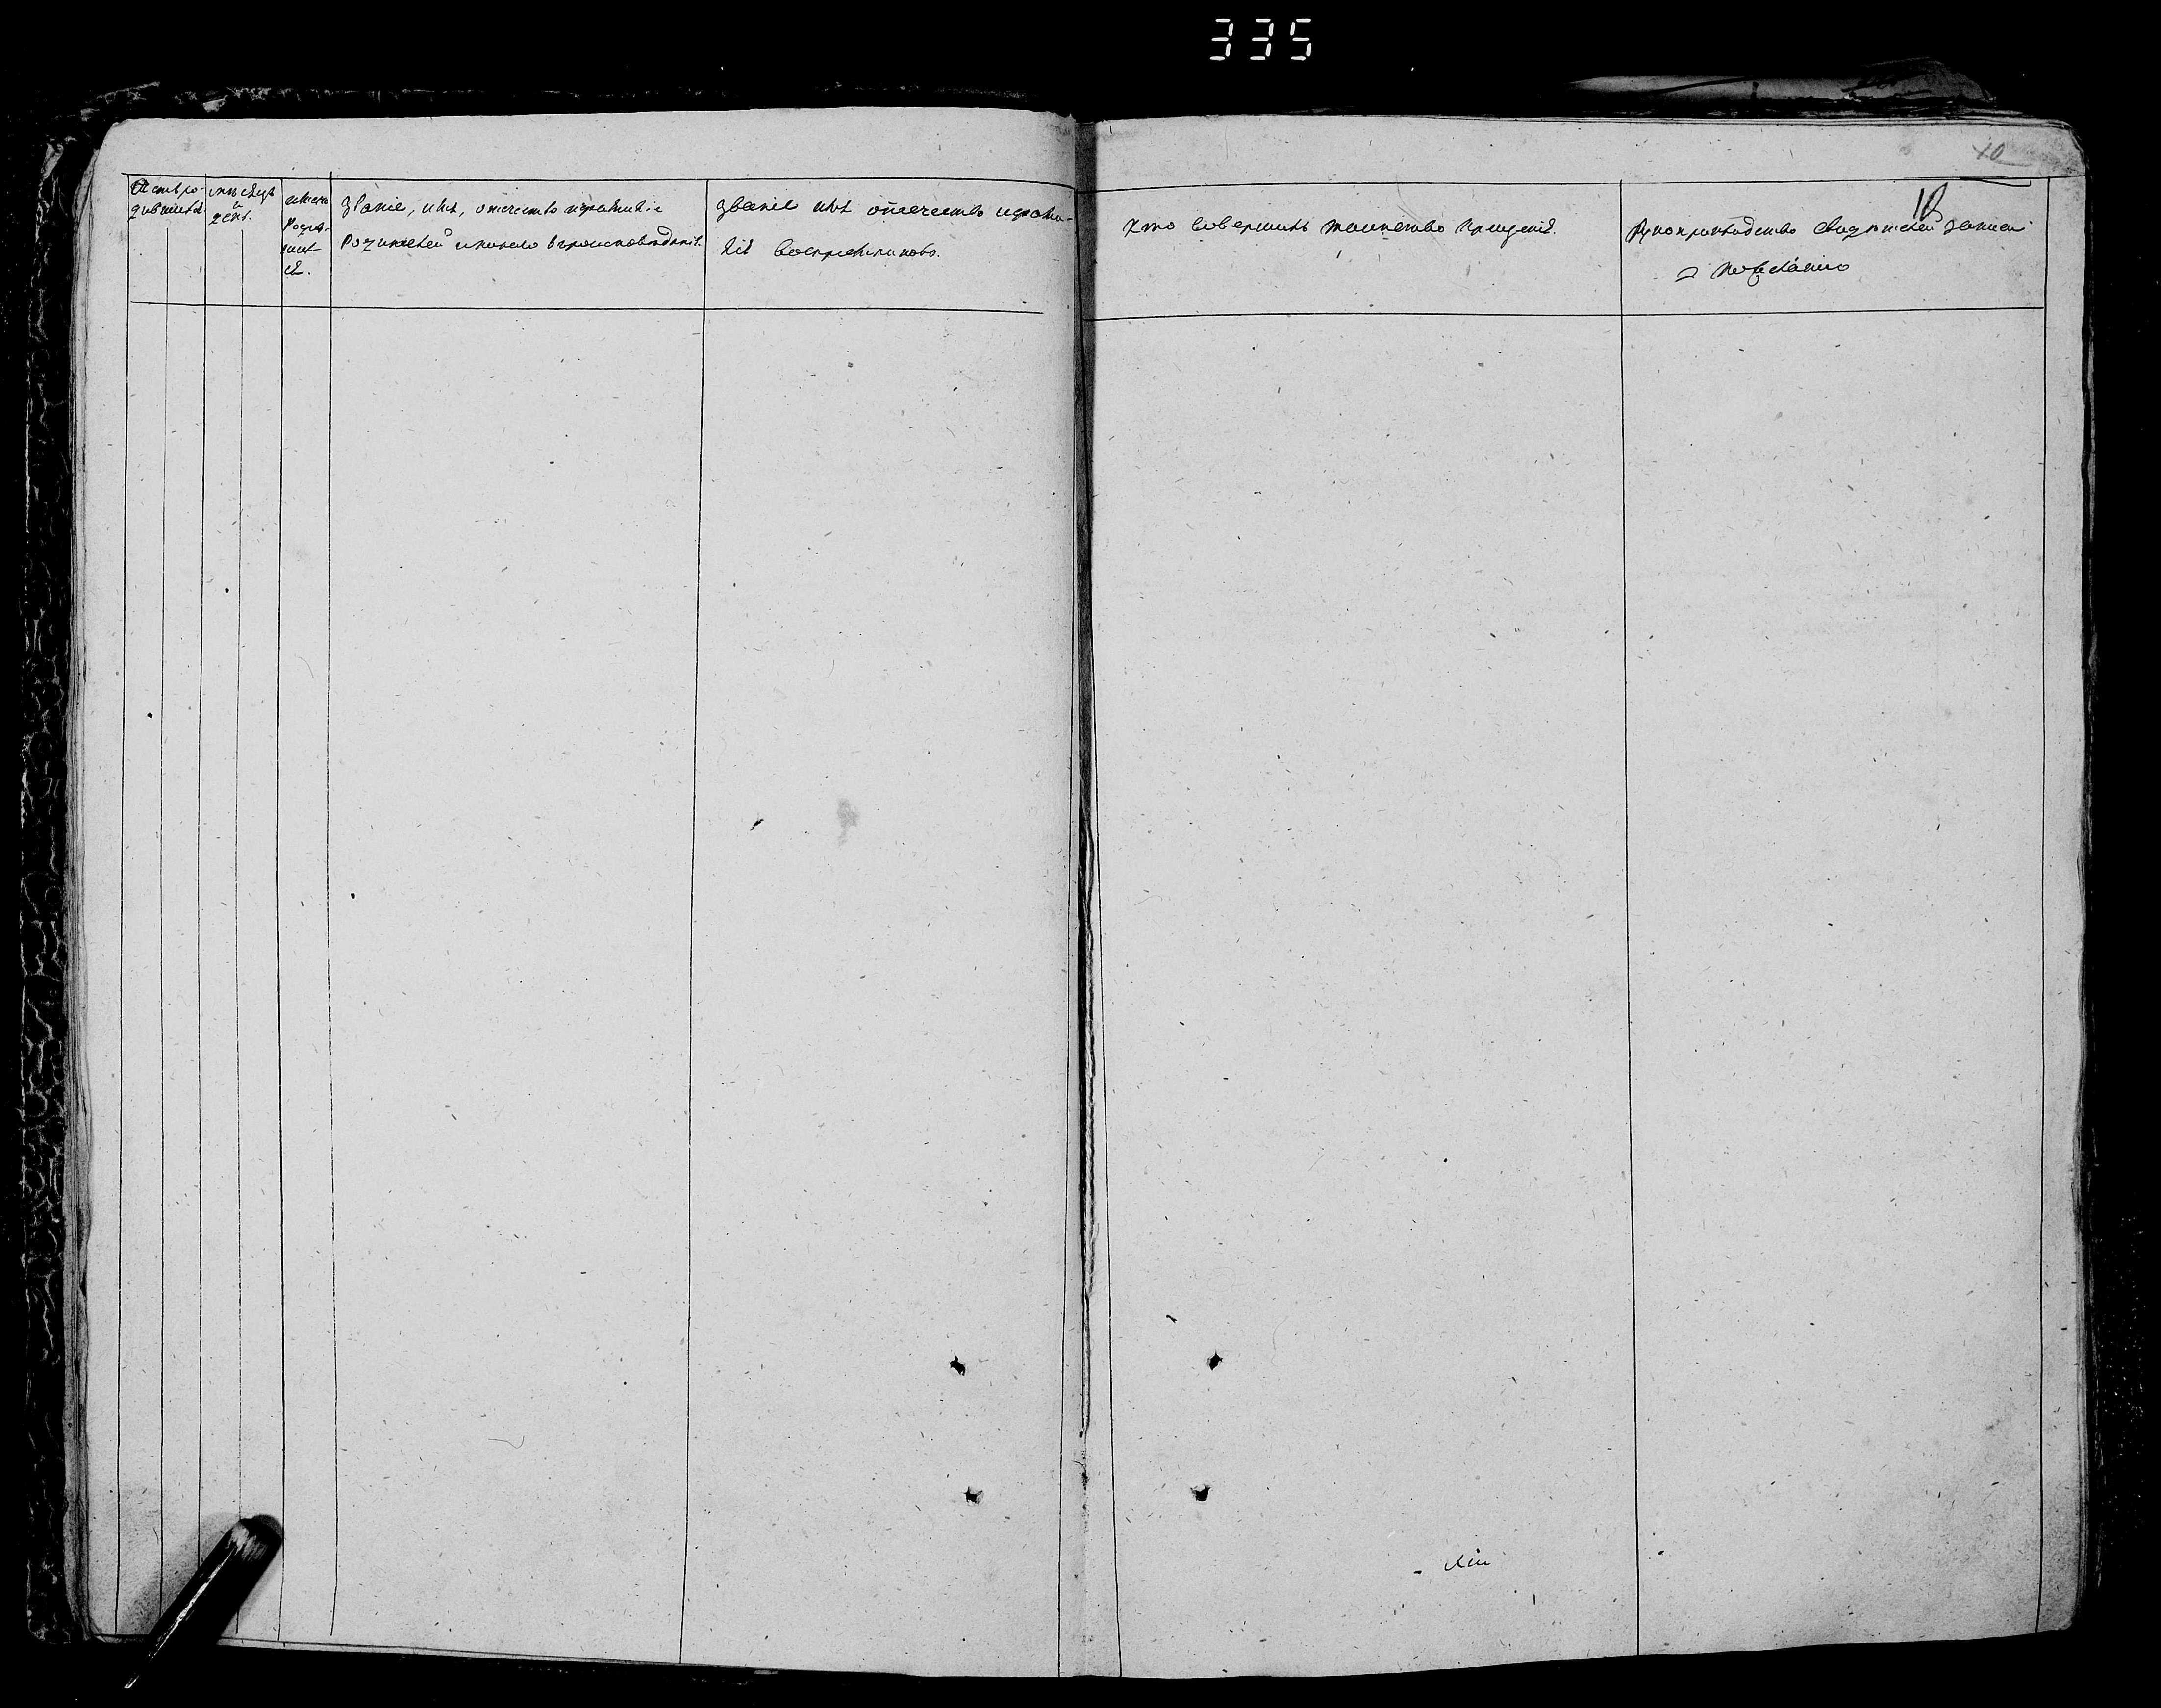 335
10
10
Счетъ ро-
дившихся
мѣсяцъ
и
день.
имена
Родив-
шихъ
ся.
Званіе, имя, отечество и фамилія
Родителей и какого вѣроисповѣданія.
Званіе имя отечество и фами-
лія воспріемниковъ.
Кто совершалъ таинство крещенія.
Рукоприкладство свидѣтелей записи
по желанію